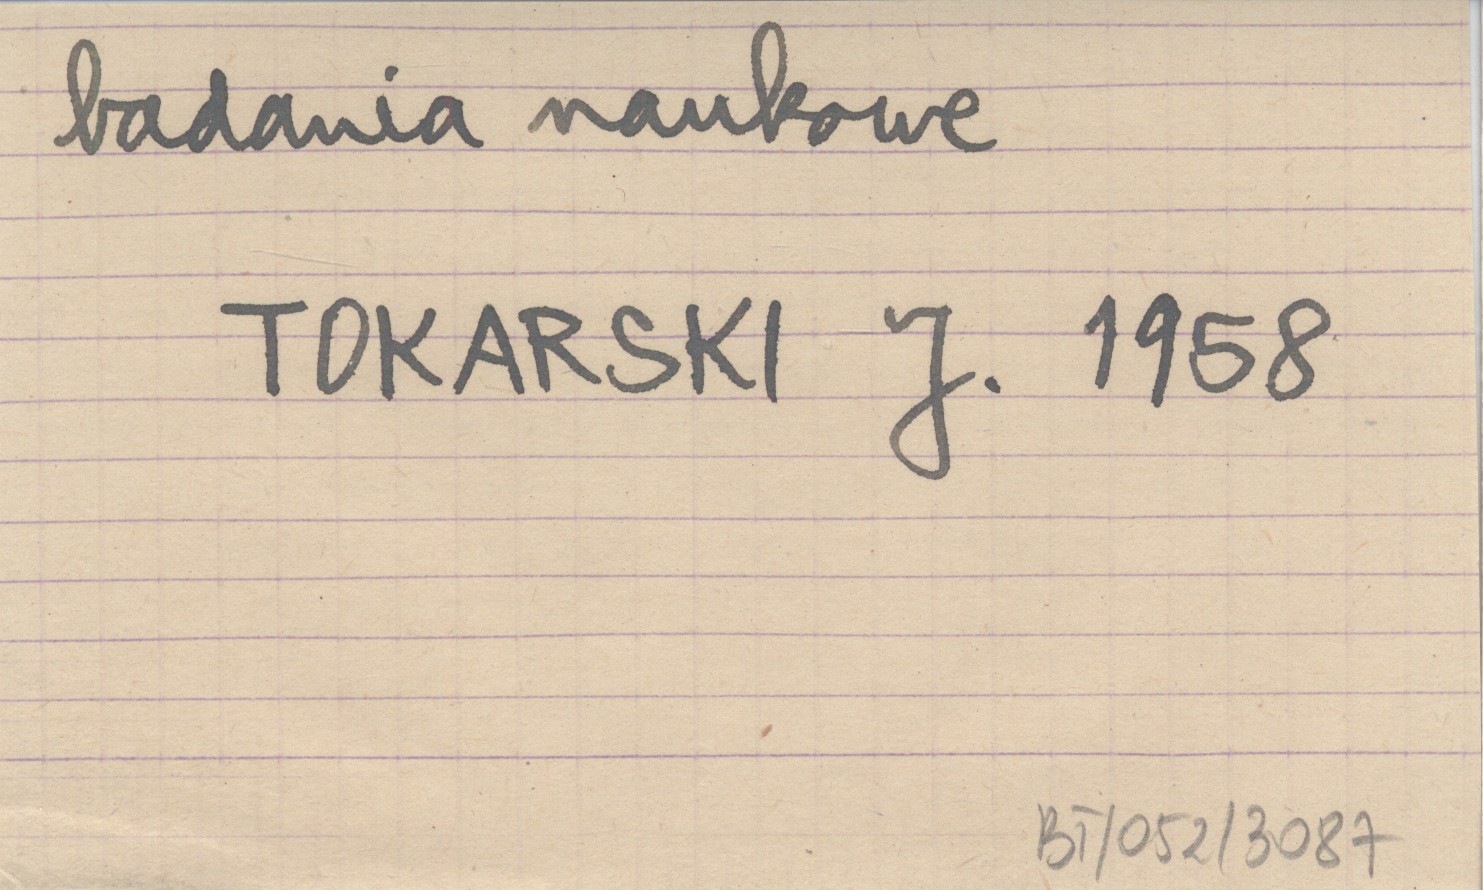 badania naukowe
TOKARSKI J. 1958
BT/052/3087